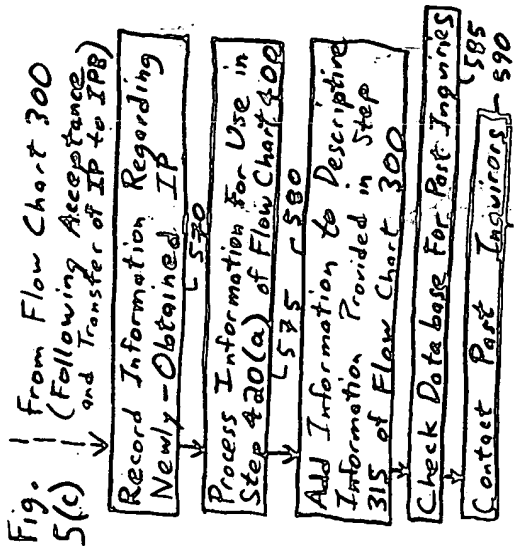 Fig.
5(c)
From Flow Chart 300
(Following Acceptance
and Transfer of IP to IPB)
Record Information Regarding
Newly-Obtained IP
570
Process Information For Use in
Step 420(a) of Flow Chart 400
575
580
Add Information to Descriptive
Information Provided in Step
315 of Flow Chart 300
Check Database For Past Inquiries
585
Contact Past Inquirors
590